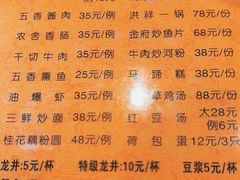 五香酱肉 35元/例 洪祥一锅 78元/份
农舍香肠 35元/例 金府炒鱼片 68元/份
干切牛肉 35元/例 牛肉炒河粉 38元/份
五香熏鱼 25元/例 马蹄糕 38元/份
油爆虾 35元/例 草鸡汤 88元/份
三鲜炒面 38元/例 红豆汤 大28元
例6元
桂花藕粉圆 48元/例 荷包蛋 2元/只
龙井:5元/杯 特级龙井:10元/杯 豆浆5元/杯